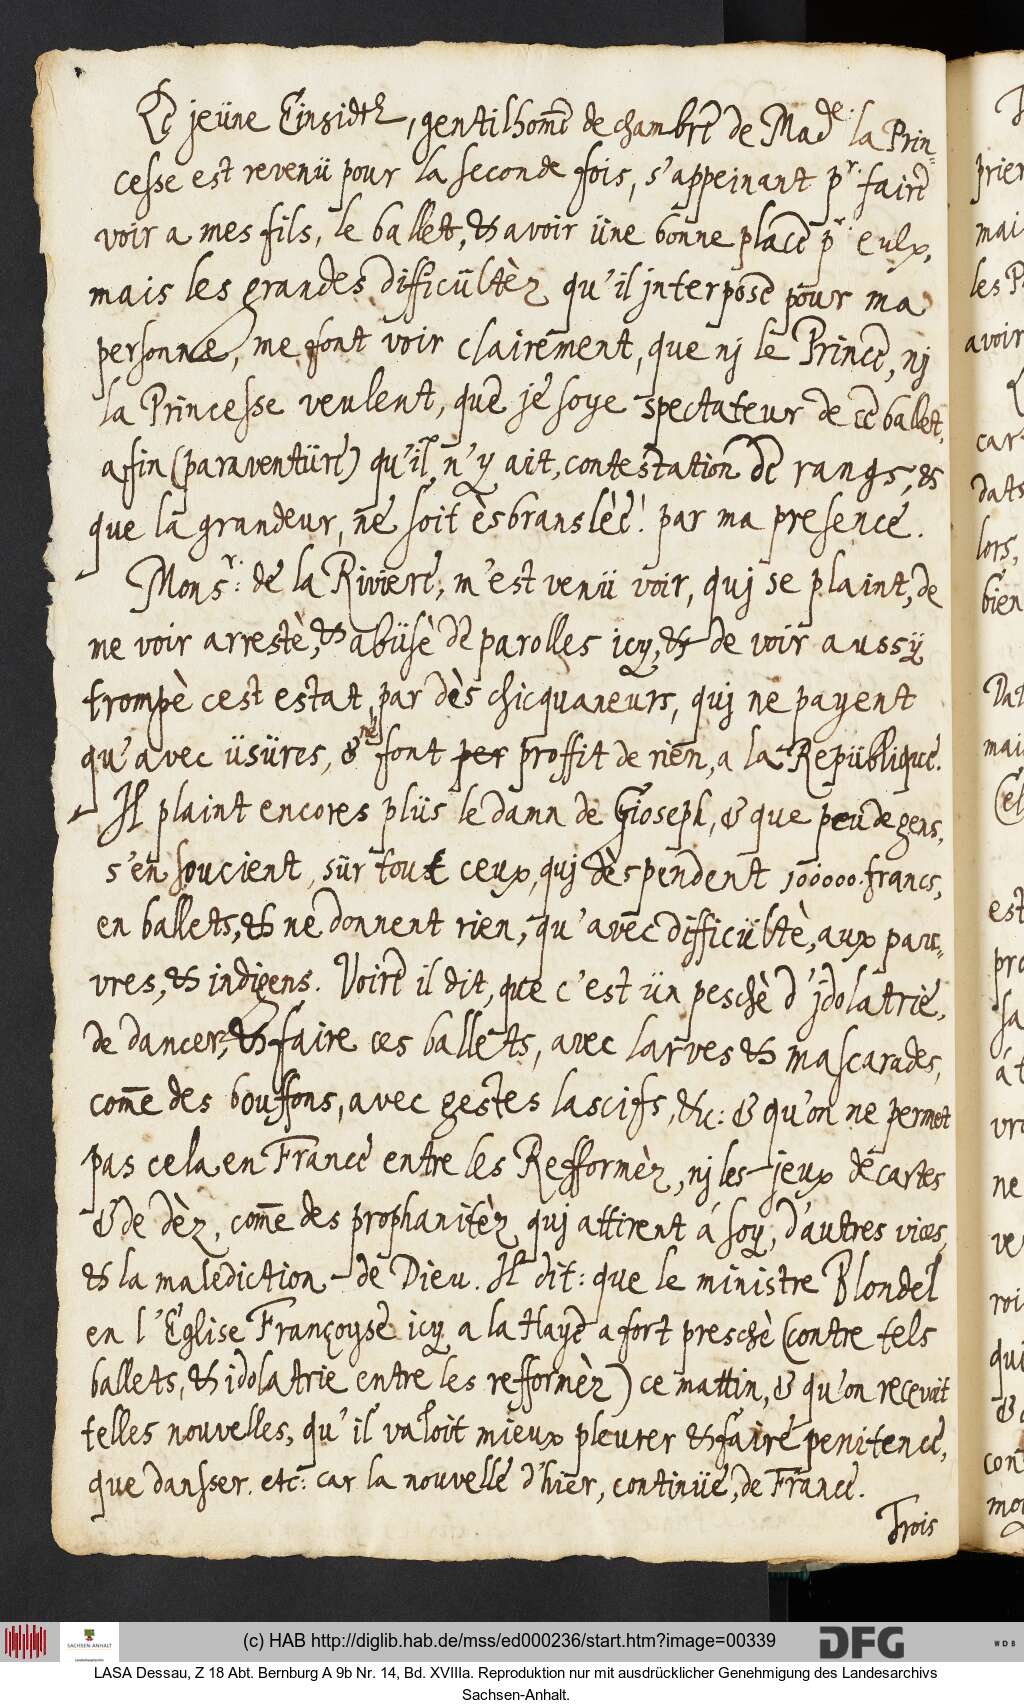 Le jeüne Einsidel, gentilhom̃e de chambre de Made: la Prin-
cesse est revenü pour la seconde fois, s'appeinant pr. faire
voir a mes fils, le ballet, & avoir üne bonne place pr. eulx,
mais les grandes difficültèz qu'il jnterpose pour ma
personne, me font voir clairement, que nj le Prince, nj
la Princesse veulent, que je soye spectateur de ce ballet,
afin (paraventüre) qu'il n'y ait, contestation de rangs, &
que la grandeur, ne soit èsbranslèe! par ma presence.
Monsr: de la Riviere, m'est venü voir, quj se plaint, de
ne voir arrestè, & abüsè de parolles icy, & de voir aussÿ
trompè cest estat, par dès chicquaneurs, quj ne payent
qu'avec üsüres, & ne font per proffit de rien, a la Repüblique.
Jl plaint encores plüs le dann de Gioseph, & que peu de gens,
s'en soucient, sür tout ceux, quj dèspendent 100000 francs,
en ballets, & ne donnent rien, qu'avec difficültè, aux pau-
vres, & indigens. Voire il dit, que c'est ün peschè d'jdolatrie,
de dancer, & faire ces ballets, avec larves & mascarades,
com̃e des bouffons, avec gestes lascifs, &c: & qu'on ne permet
pas cela en France entre les Refformèz, nj les jeux de cartes
& de dèz, com̃e des prophanitèz quj attirent á soy, d'autres vices,
& la malediction de Dieu. Jl dit: que le ministre Blondel
en l'Eglise Françoyse icy a la Haye a fort preschè (contre tels
ballets, & idolatrie entre les refformèz) ce mattin, & qu'on recevoit
telles nouvelles, qu'il valoit mieux pleurer & faire penitence,
que dansser. etc: car la nouvelle d'hier, continüe, de France.
Trois
prier
mai
les P
avoir
car
dats
lors,
bien
Dat
mai
est
pro
sa
á t
vro
ne
ve
roi
qui
& a
con
mo
(c) HAB http://diglib.hab.de/mss/ed000236/start.htm?image=00339
SACHSEN-ANHALT
DFG
WDB
LASA Dessau, Z 18 Abt. Bernburg A 9b Nr. 14, Bd. XVIIIa. Reproduktion nur mit ausdrücklicher Genehmigung des Landesarchivs
Sachsen-Anhalt.